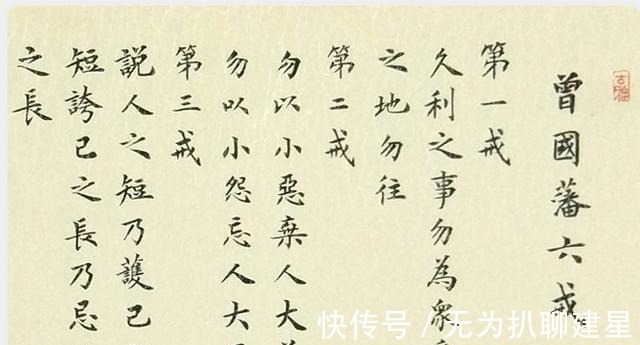 曾國藩六戒
第一戒
久利之事勿為衆
之地勿往
第二戒
勿以小惡棄人大
勿以小怨忘人大
第三戒
説人之短乃護己
短誇己之長乃忌
之長
快传号 / 无为扒聊建星